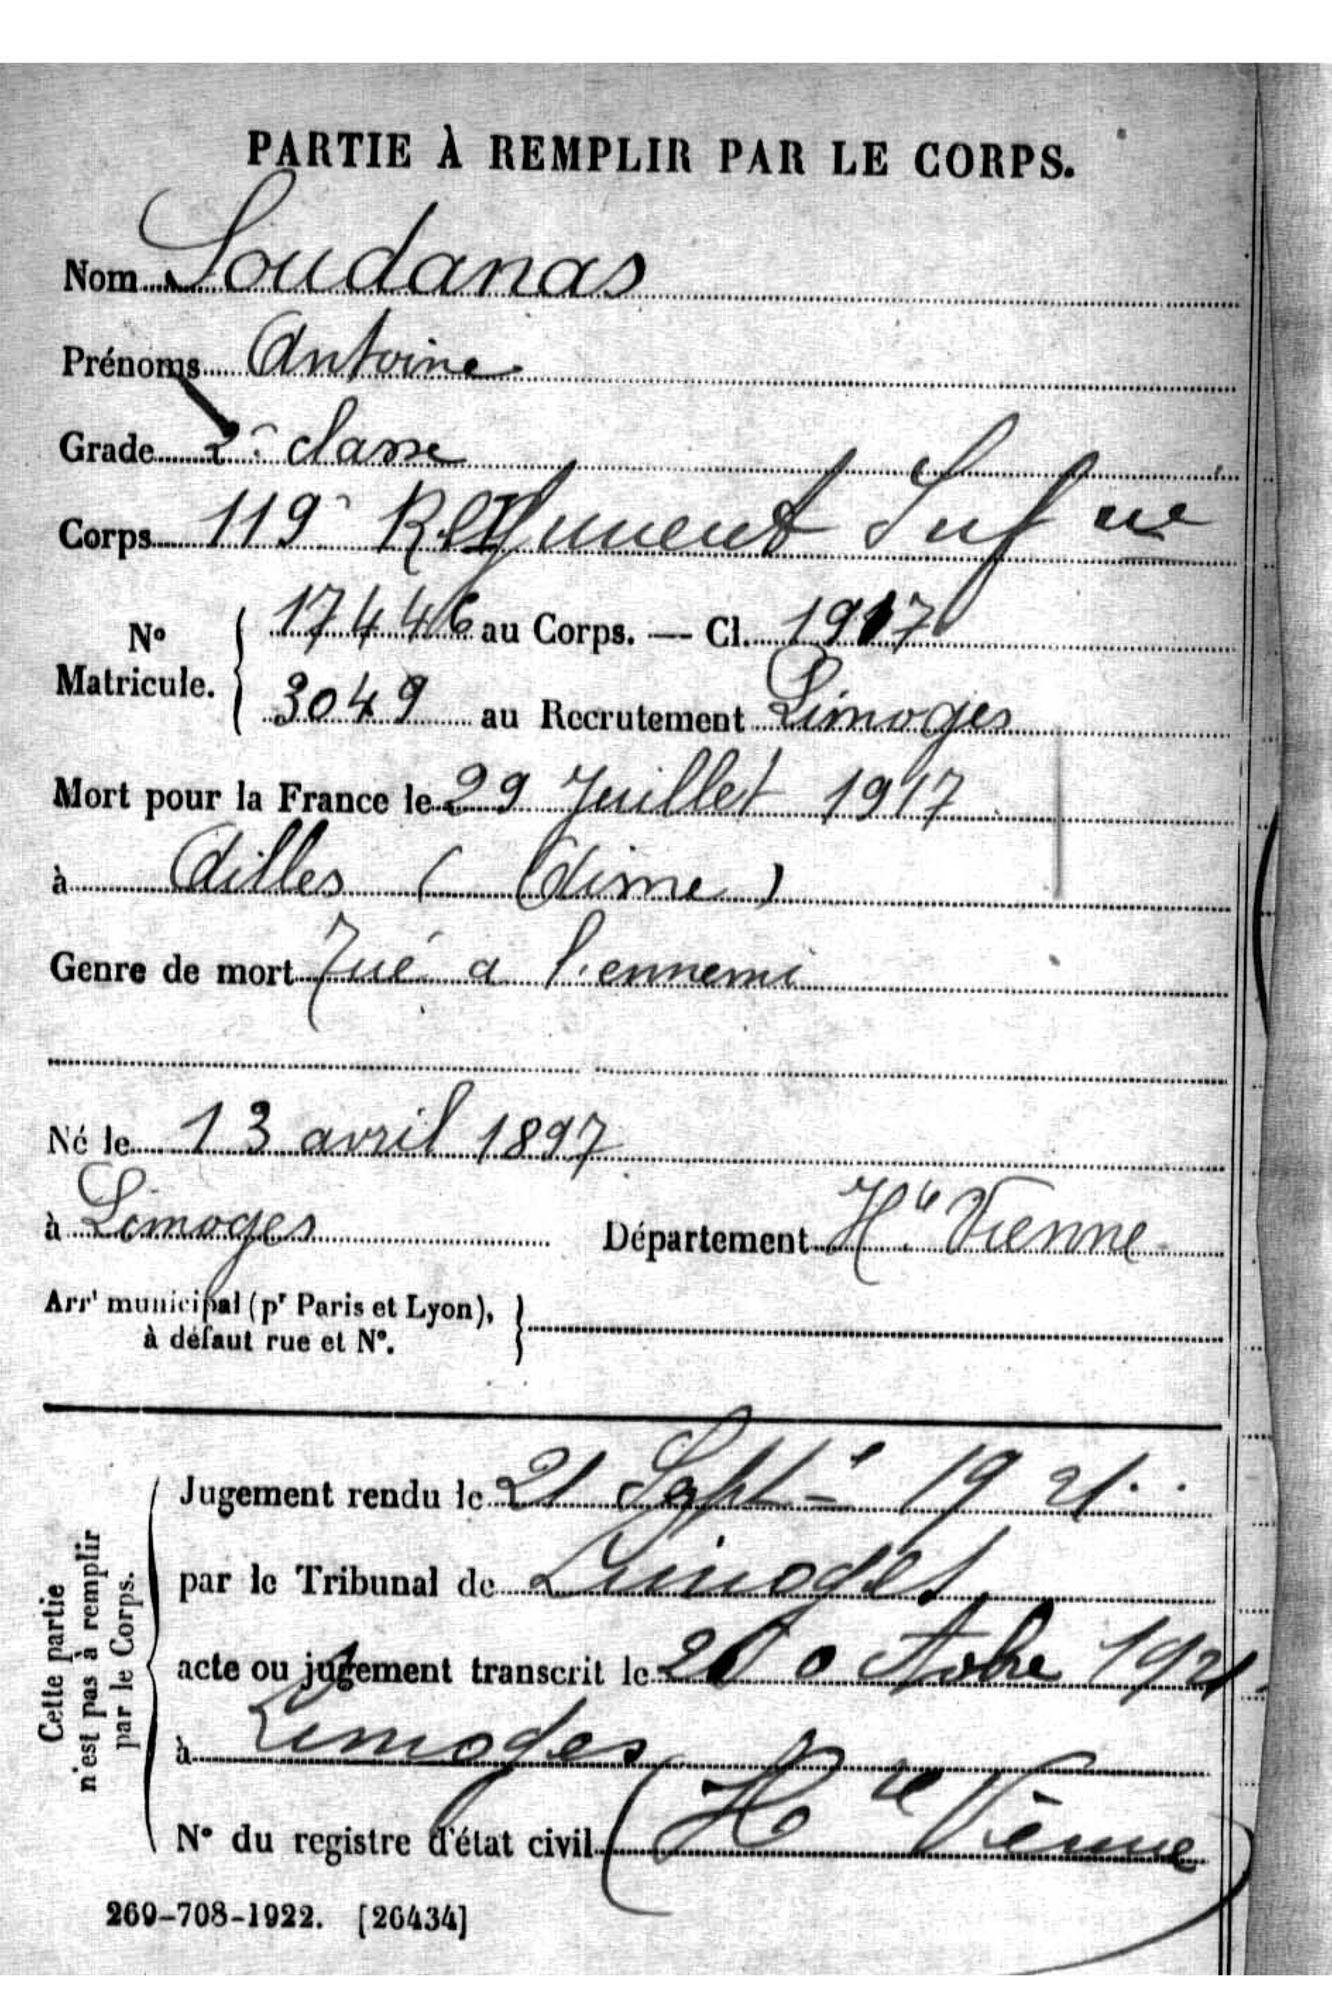 PARTIE À REMPLIR PAR LE CORPS.
Nom Soudanas
Prénoms Antoine
Grade 2e classe
Corps 119e Régiment Inf rie
No Matricule. 17446 au Corps. — Cl. 1917
3049 au Recrutement Limoges
Mort pour la France le 29 Juillet 1917
à Ailles (Aisne)
Genre de mort Tué a l'ennemi
Né le 13 avril 1897
à Limoges Département Hte Vienne
Arrt municipal (pr Paris et Lyon),
à défaut rue et No.
Cette partie
n'est pas à remplir
par le Corps.
Jugement rendu le 21 Sept 1921
par le Tribunal de Limoges
acte ou jugement transcrit le octobre 1921
à Limoges
No du registre d'état civil (Hte Vienne)
269-708-1922. [26434]